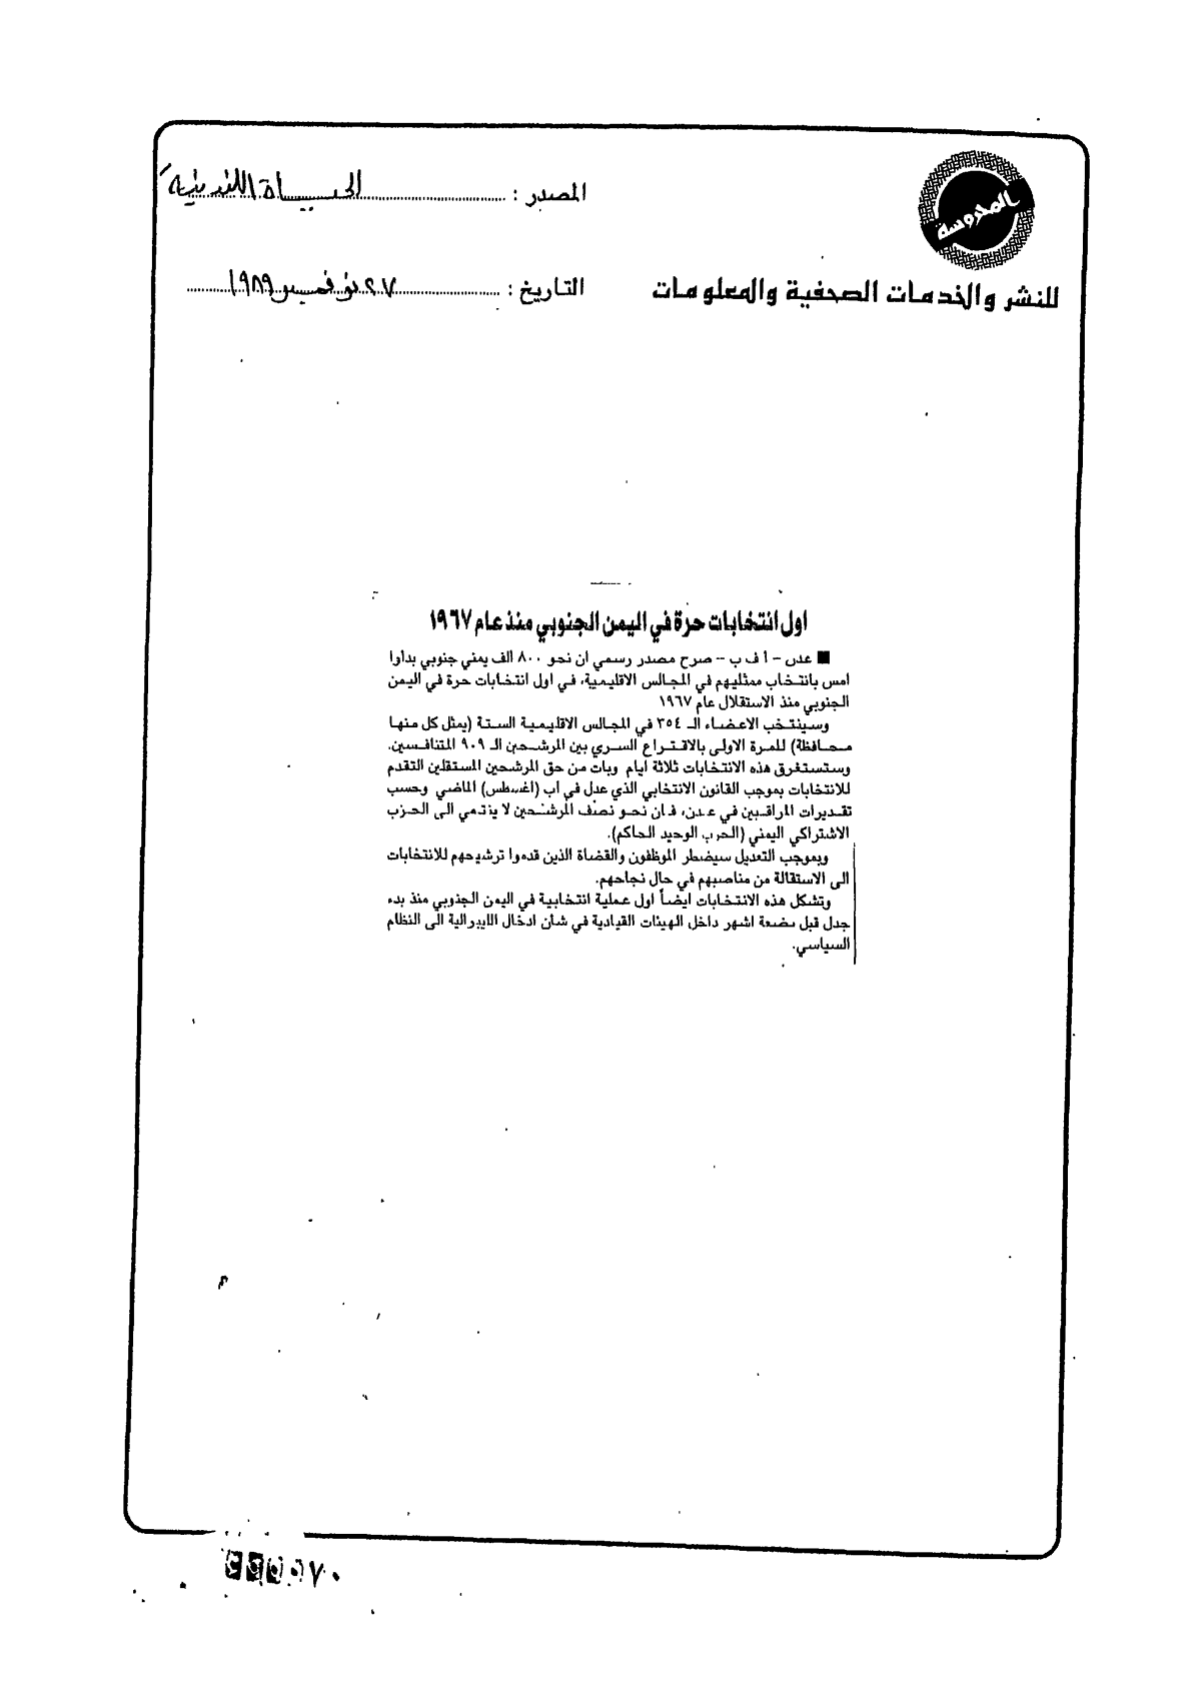 المحروسة
للنشر والخدمات الصحفية والمعلومات
المصدر : الحياة اللندنية
التاريخ : ٢٧ نوفمبر ١٩٨٩
اول انتخابات حرة في اليمن الجنوبي منذ عام ١٩٦٧
■ عدن – أ ف ب – صرح مصدر رسمي ان نحو ٨٠٠ الف يمني جنوبي بدأوا
امس بانتخاب ممثليهم في المجالس الاقليمية، في اول انتخابات حرة في اليمن
الجنوبي منذ الاستقلال عام ١٩٦٧
وسينتخب الاعضاء الـ ٣٥٤ في المجالس الاقليمية الستة (يمثل كل منها
محافظة) للمرة الاولى بالاقتراع السري بين المرشحين الـ ٩٠٩ المتنافسين.
وستستغرق هذه الانتخابات ثلاثة ايام وبات من حق المرشحين المستقلين التقدم
للانتخابات بموجب القانون الانتخابي الذي عدل في آب (اغسطس) الماضي وحسب
تقديرات المراقبين في عدن، فان نحو نصف المرشحين لا ينتمي الى الحزب
الاشتراكي اليمني (الحزب الوحيد الحاكم).
وبموجب التعديل سيضطر الموظفون والقضاة الذين قدموا ترشيحهم للانتخابات
الى الاستقالة من مناصبهم في حال نجاحهم.
وتشكل هذه الانتخابات ايضاً اول عملية انتخابية في اليمن الجنوبي منذ بدء
جدل قبل بضعة اشهر داخل الهيئات القيادية في شان ادخال الليبرالية الى النظام
السياسي.